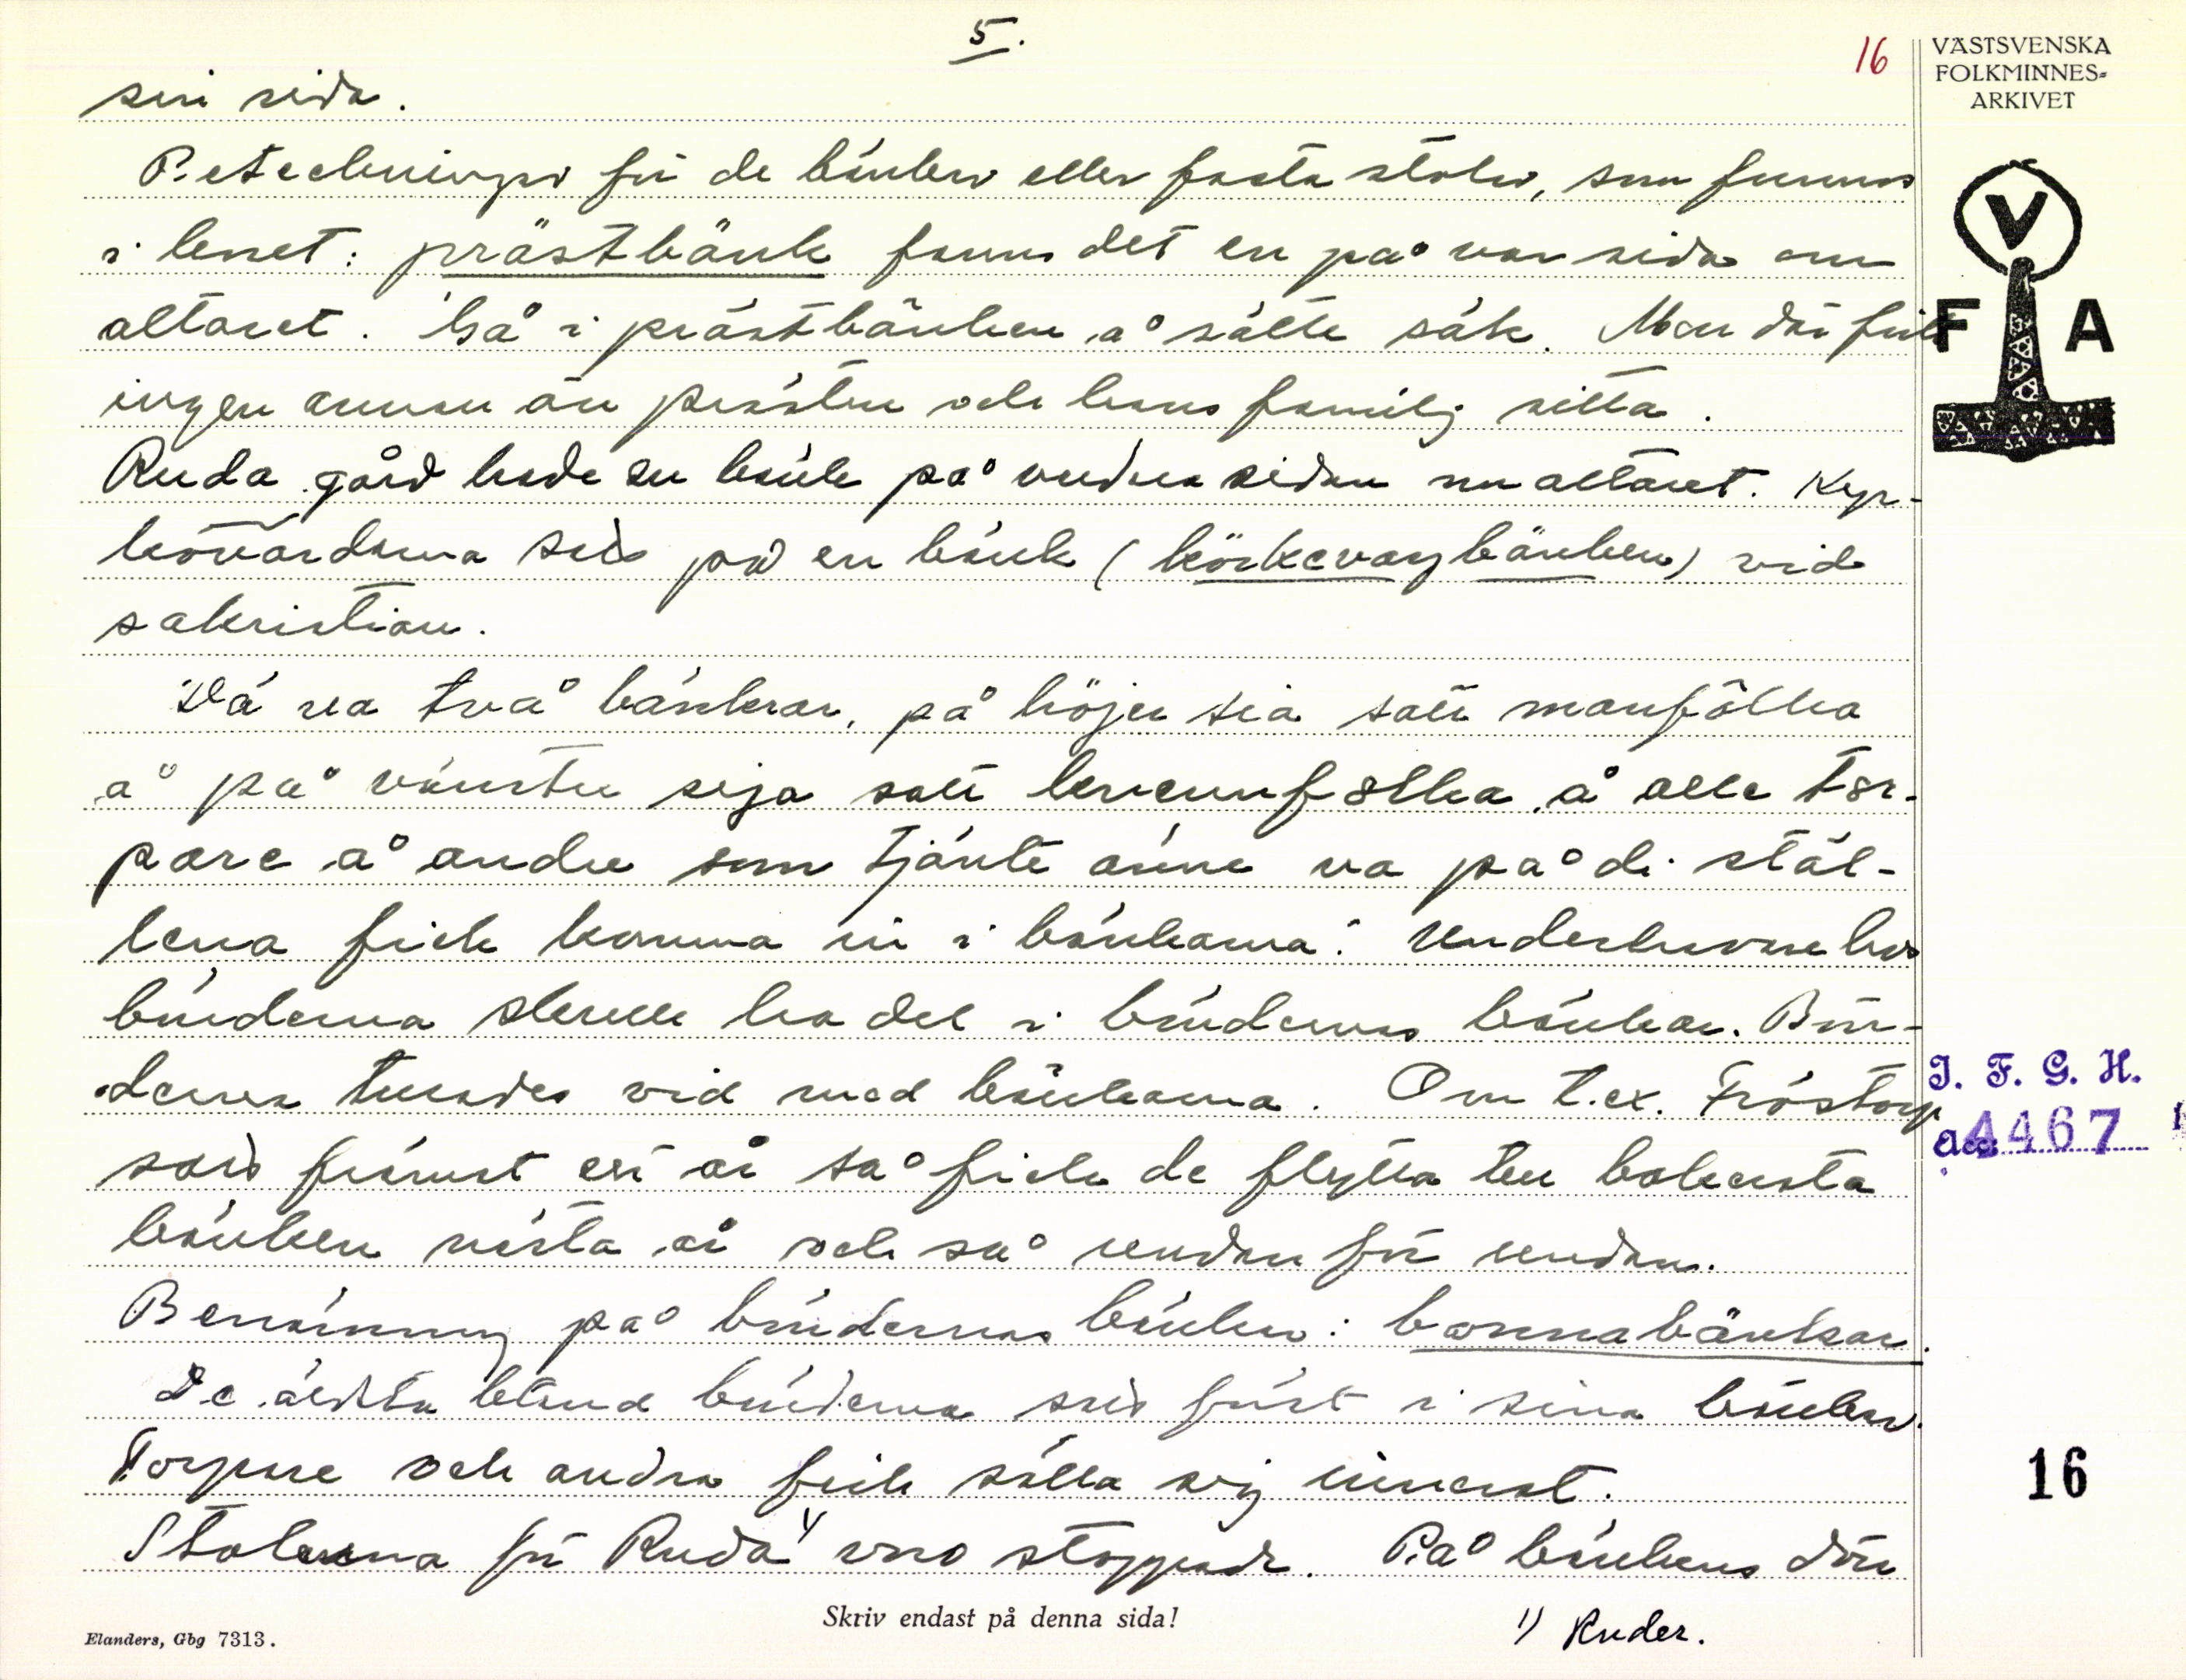 5.
16
VÄSTSVENSKA
FOLKMINNES=
ARKIVET
sin sida.
P. eteckningar för de bänkar eller fasta stolar, som funnos
i koret: prästbänk fanns det en på var sida om
altaret. "Gå i prästbänken å sätte säk. Men där fick
ingen annan än prästen och hans familj sitta.
V
F A
Ruda gård hade en bänk på södra sidan om altaret. Kyr-
kovärdarna satt på en bänk (körkevarybänken) vid
sakristian.
"Dä va två bänkrar, på höjer sia satt manfölka
å på vänster seja satt kvennfölka å alle tor-
pare å andre som tjänte änne va på di stäl-
lena fick komma in i bänkarna." Underhavane hos
bönderna skulle ha del i böndernas bänkar. Bön-
derna turades vid med bänkarna. Om t.ex. Fröstorp
satt främst ett år så fick de flytta till bakersta
bänken nästa år och så undan för undan.
Benämning på böndernas bänkar: bonnabänkar.
De äldsta bland bönderna satt först i sina bänkar.
Torpare och andra fick sätta sig innerst.
Stolarna för Ruda 1) voro stoppade. På bänkens dörr
1) Ruder.
I. F. G. H.
acc 4467
16
Skriv endast på denna sida!
Elanders, Gbg 7313.